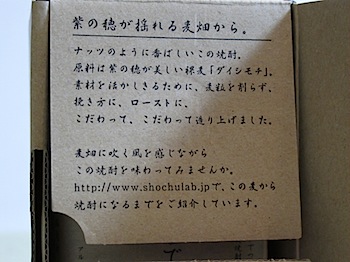 紫の穂が揺れる麦畑から。
ナッツのように香ばしいこの焼酎。
原料は紫の穂が美しい裸麦「ダイシモチ」。
素材を活かしきるために、麦粒を削らず、
挽き方に、ローストに、
こだわって、こだわって造り上げました。
麦畑に吹く風を感じながら
この焼酎を味わってみませんか。
http://www.shochulab.jpで、この麦から
焼酎になるまでをご紹介しています。